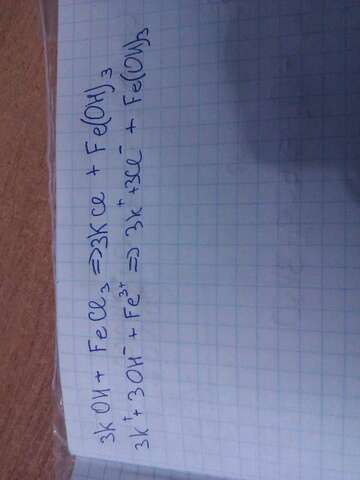 3KOH + FeCl₃ => 3KCl + Fe(OH)₃
3K⁺ + 3OH⁻ + Fe³⁺ => 3K⁺ + 3Cl⁻ + Fe(OH)₃